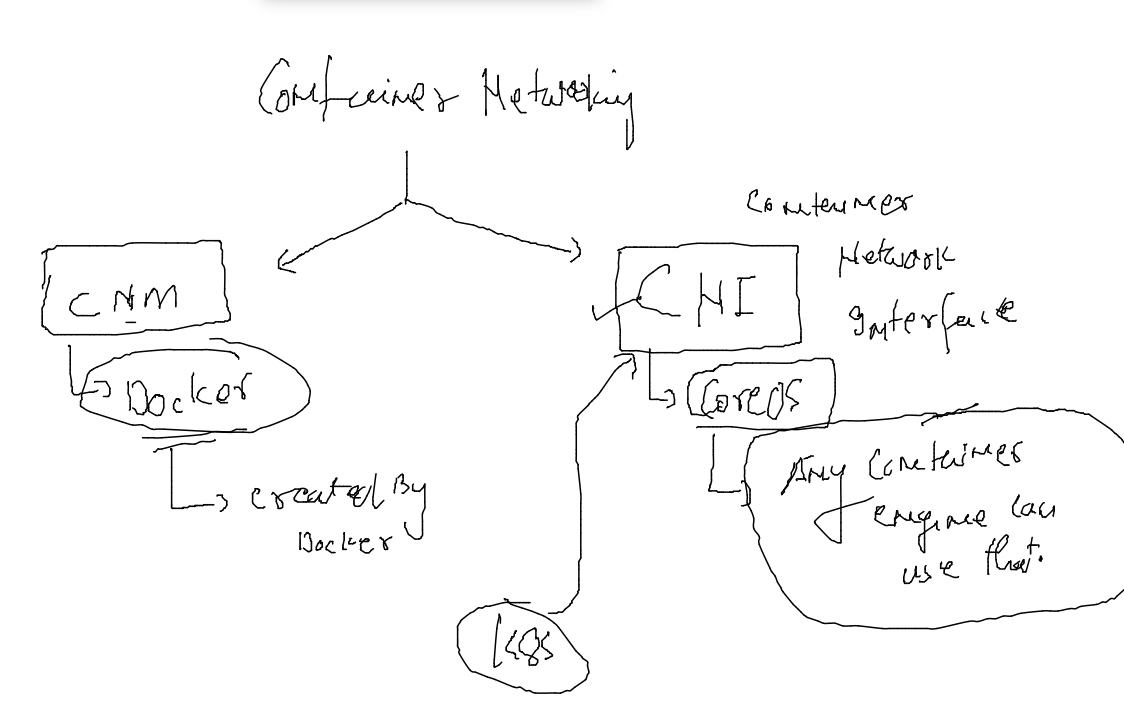 Container Networking
CNM
Docker
created By
Docker
CNI
Container
Network
Interface
CoreOS
Any Container
engine can
use that.
k8s